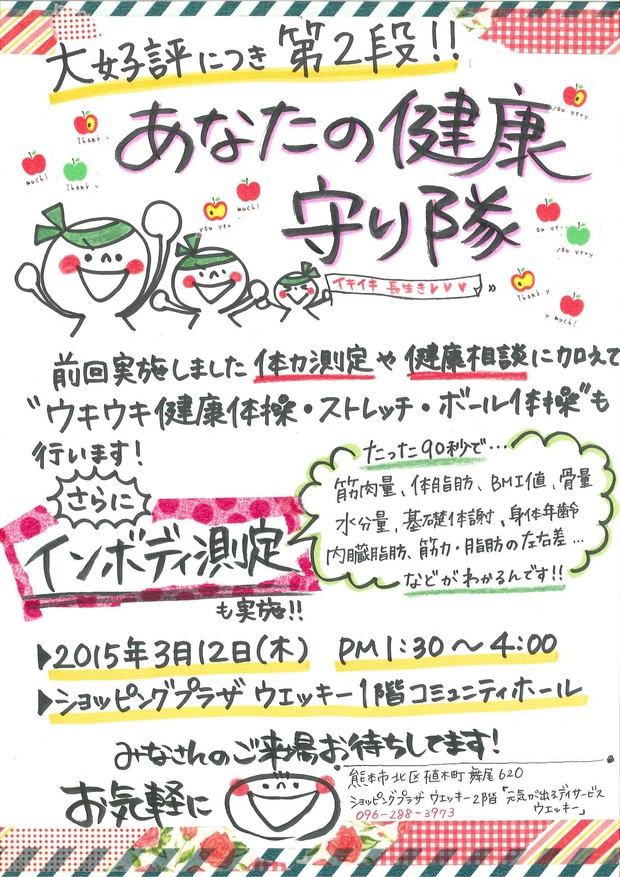 大好評につき 第2段!!
あなたの健康
守り隊
Thank
much!
you very
much!
you ver
ou very
you very
Thank y
y much!
イキイキ 長生き♥♥♥ »
前回実施しました 体力測定や 健康相談に加えて
"ウキウキ健康体操・ストレッチ・ボール体操"も
行います!
さらに
インボディ測定
も実施!!
たった90秒で…
筋肉量、体脂肪、BMI値、骨量
水分量、基礎体謝、身体年齢
内臓脂肪、筋力・脂肪の左右差…
などがわかるんです!!
▶2015年3月12日(木) PM1:30〜4:00
▶ショッピングプラザ ウエッキー1階コミュニティホール
みなさんのご来場お待ちしてます!
お気軽に
熊本市北区植木町舞尾620
ショッピングプラザ ウエッキー2階「元気が出るデイサービス
ウエッキー」
096-288-3973